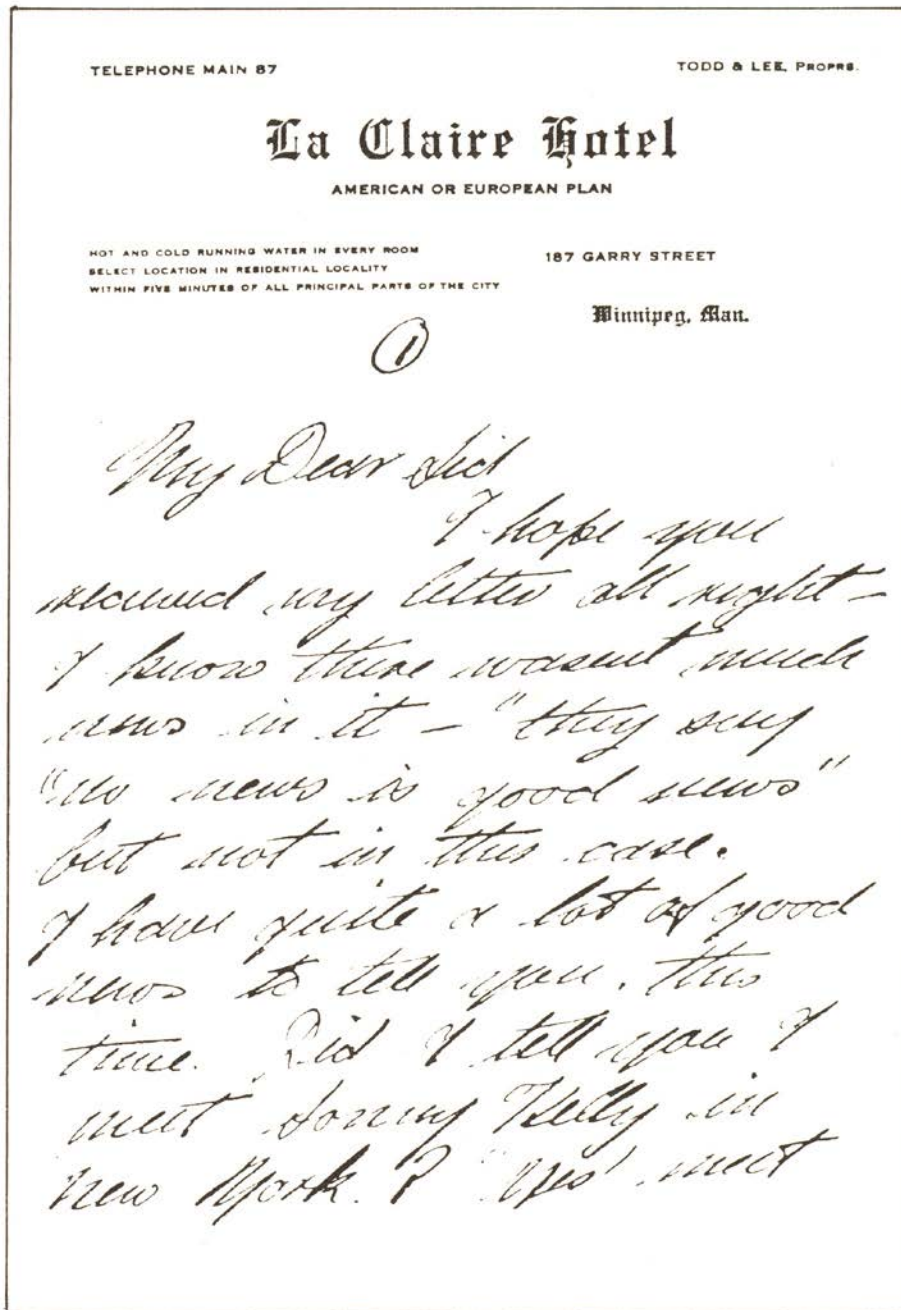 TELEPHONE MAIN 87
TODD & LEE, PROPRS.
La Claire Hotel
AMERICAN OR EUROPEAN PLAN
HOT AND COLD RUNNING WATER IN EVERY ROOM
SELECT LOCATION IN RESIDENTIAL LOCALITY
WITHIN FIVE MINUTES OF ALL PRINCIPAL PARTS OF THE CITY
187 GARRY STREET
Winnipeg, Man.
1
My Dear Sid
I hope you
received my letter all right –
I know there wasent much
news in it – "they say
"no news is good news"
but not in this case.
I have quite a lot of good
news to tell you. this
time. Did I tell you I
meet Sonny Kelly in
New York. ? "Yes' meet